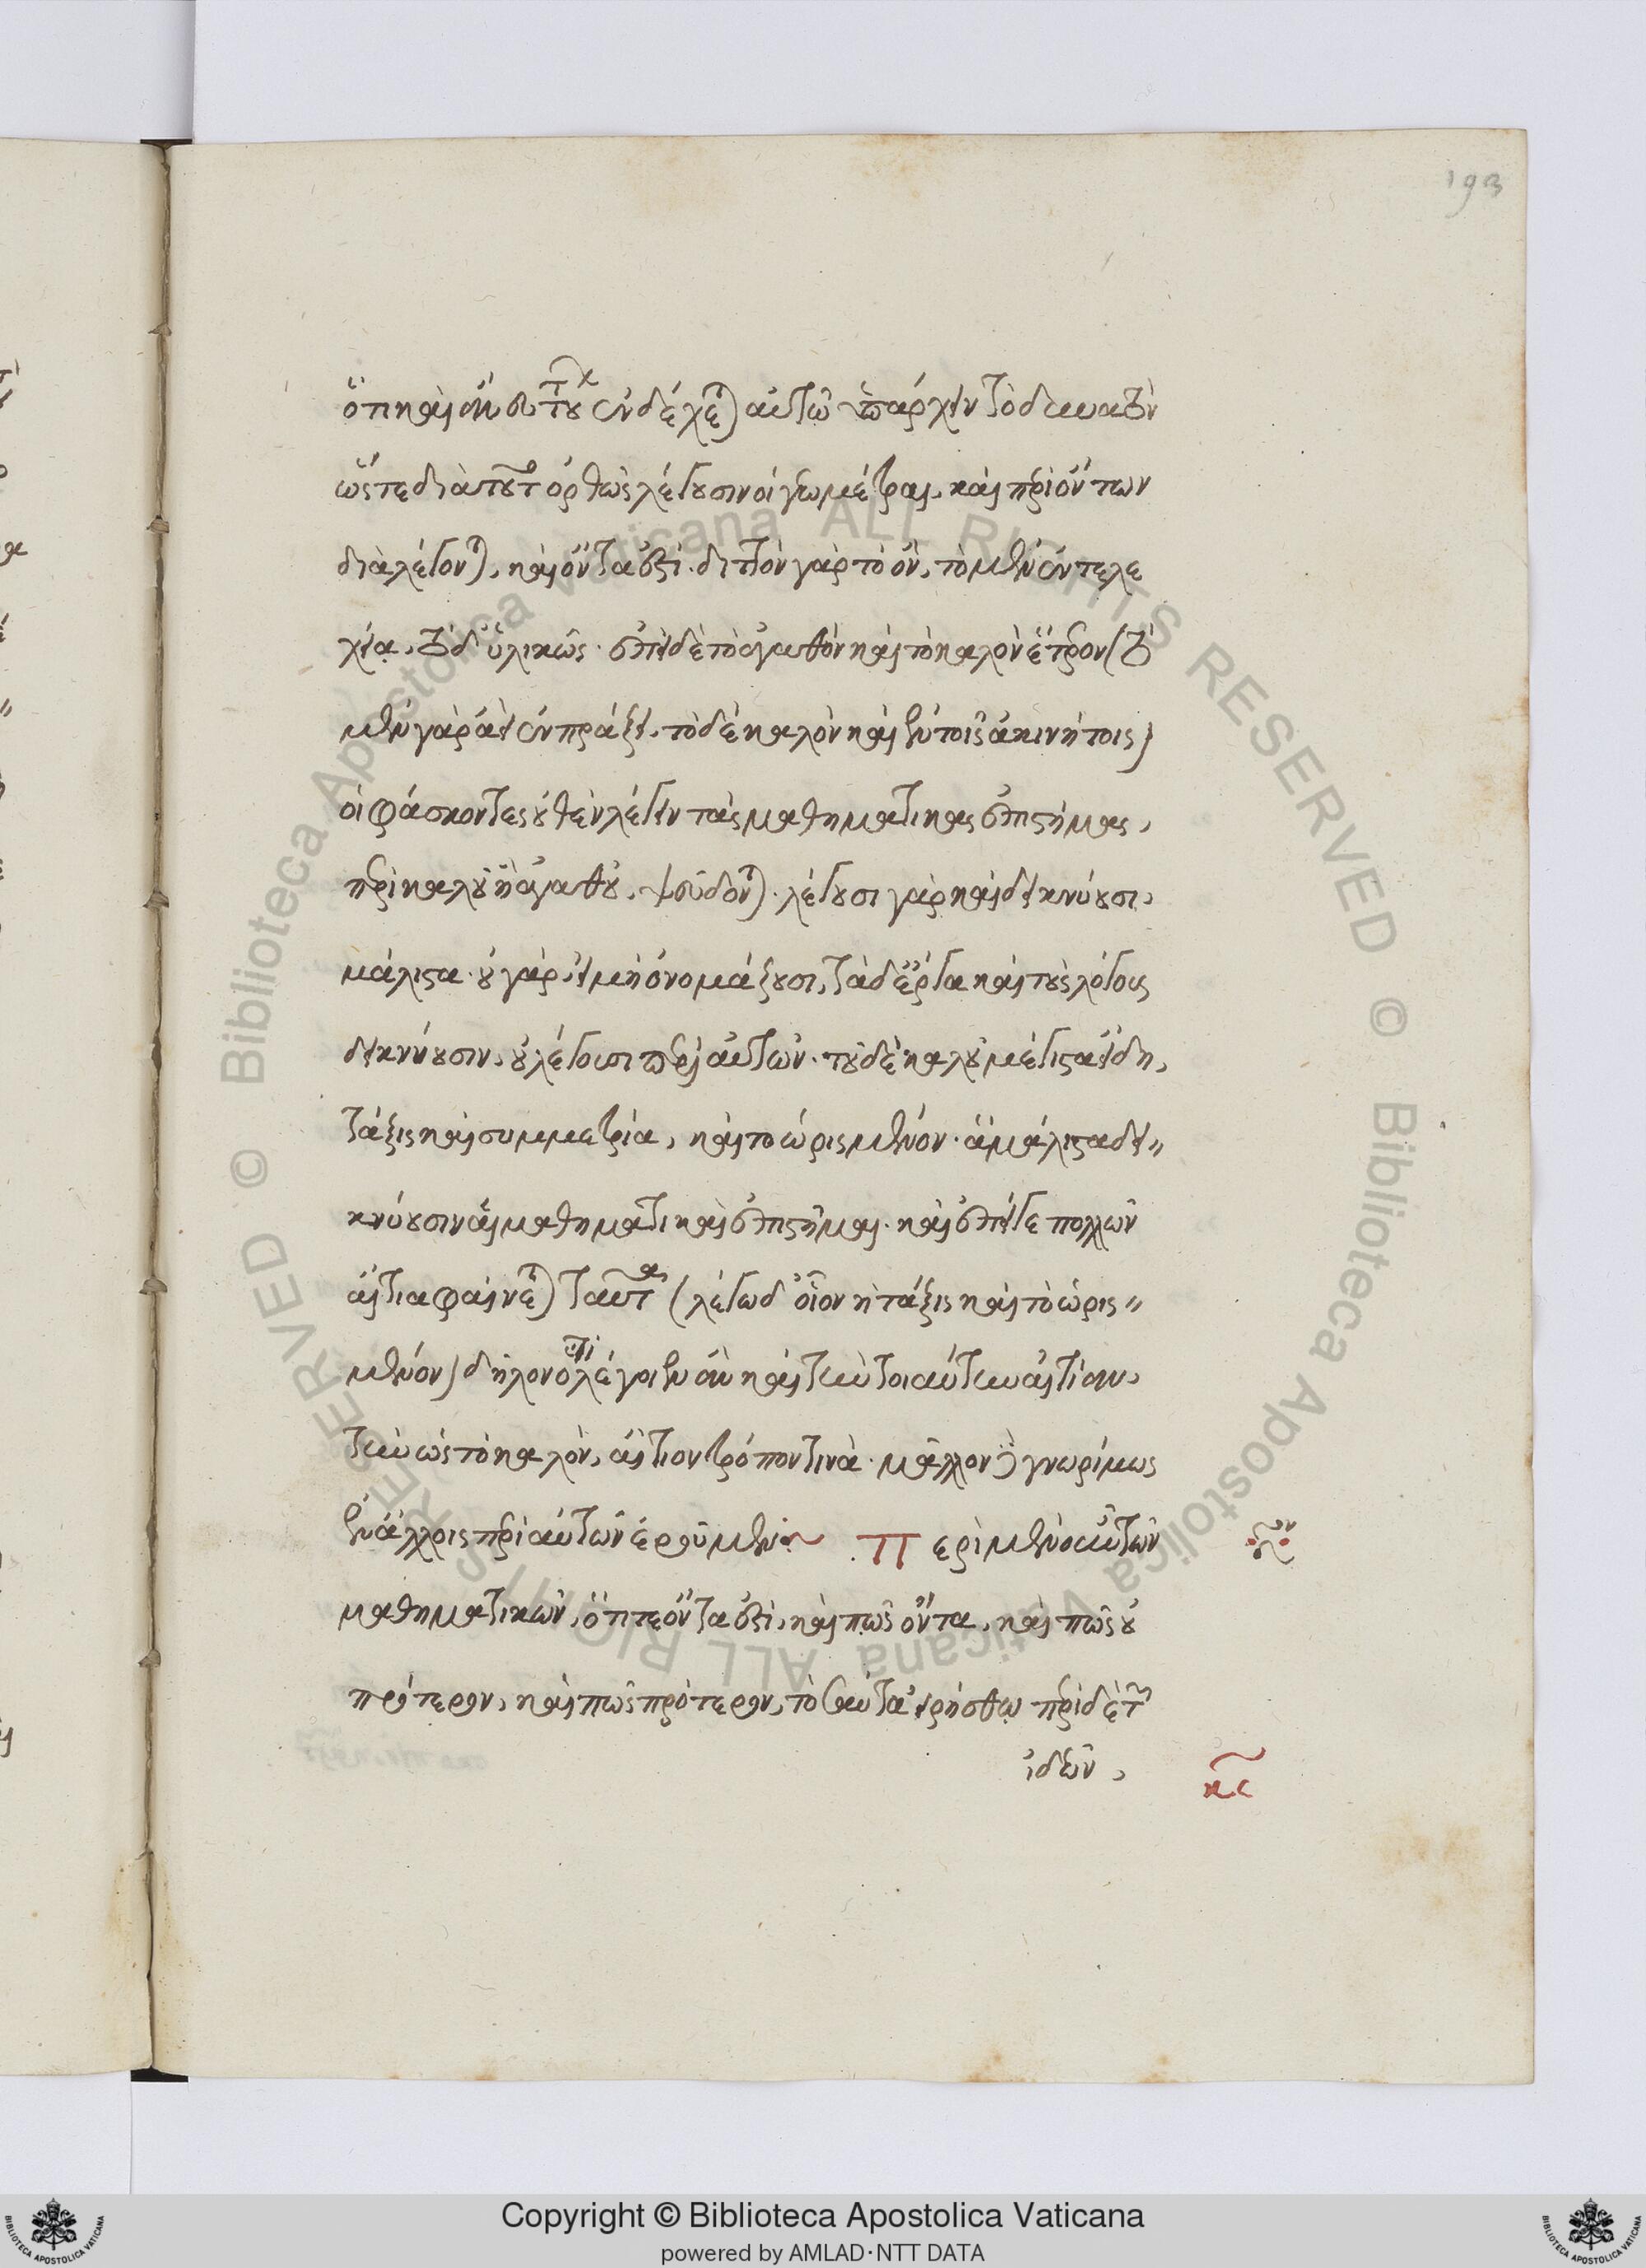 193
ὅτι καὶ ἄνευ τούτου ἐνδέχεται αὐτῷ ὑπάρχειν τὸ δυνατόν
ὥστε διὰ τοῦτο ὀρθῶς λέγουσιν οἱ γεωμέτραι, καὶ περὶ ὄντων
διαλέγονται, καὶ ὄντα ἐστί. διττὸν γὰρ τὸ ὄν, τὸ μὲν ἐντελε
χείᾳ, τὸ δ' ὑλικῶς. ἐπεὶ δὲ τὸ ἀγαθὸν καὶ τὸ καλὸν ἕτερον (τὸ
μὲν γὰρ ἀεὶ ἐν πράξει, τὸ δὲ καλὸν καὶ ἐν τοῖς ἀκινήτοις)
οἱ φάσκοντες οὐθὲν λέγειν τὰς μαθηματικὰς ἐπιστήμας,
περὶ καλοῦ ἢ ἀγαθοῦ, ψεύδονται. λέγουσι γὰρ καὶ δεικνύουσι,
μάλιστα. οὐ γὰρ εἰ μὴ ὀνομάζουσι, τὰ δ' ἔργα καὶ τοὺς λόγους
δεικνύουσιν, οὐ λέγουσι περὶ αὐτῶν. τοῦ δὲ καλοῦ μέγιστα εἴδη,
τάξις καὶ συμμετρία, καὶ τὸ ὡρισμένον. ἃ μάλιστα δει
κνύουσιν αἱ μαθηματικαὶ ἐπιστῆμαι. καὶ ἐπεί γε πολλῶν
αἴτια φαίνεται ταῦτα (λέγω δ' οἷον ἡ τάξις καὶ τὸ ὡρις
μένον) δῆλον ὅτι λέγοιεν ἂν καὶ τὴν τοιαύτην αἰτίαν,
τὴν ὡς τὸ καλὸν, αἴτιον τρόπον τινὰ. μᾶλλον δὲ γνωρίμως
ἐν ἄλλοις περὶ αὐτῶν ἐροῦμεν. Περὶ μὲν οὖν τῶν
μαθηματικῶν, ὅτι τε ὄντα ἐστὶ, καὶ πῶς ὄντα, καὶ πῶς οὐ
πρότερον, καὶ πῶς πρότερον, τοσαῦτα εἰρήσθω περὶ δὲ τῶν
ἰδεῶν,